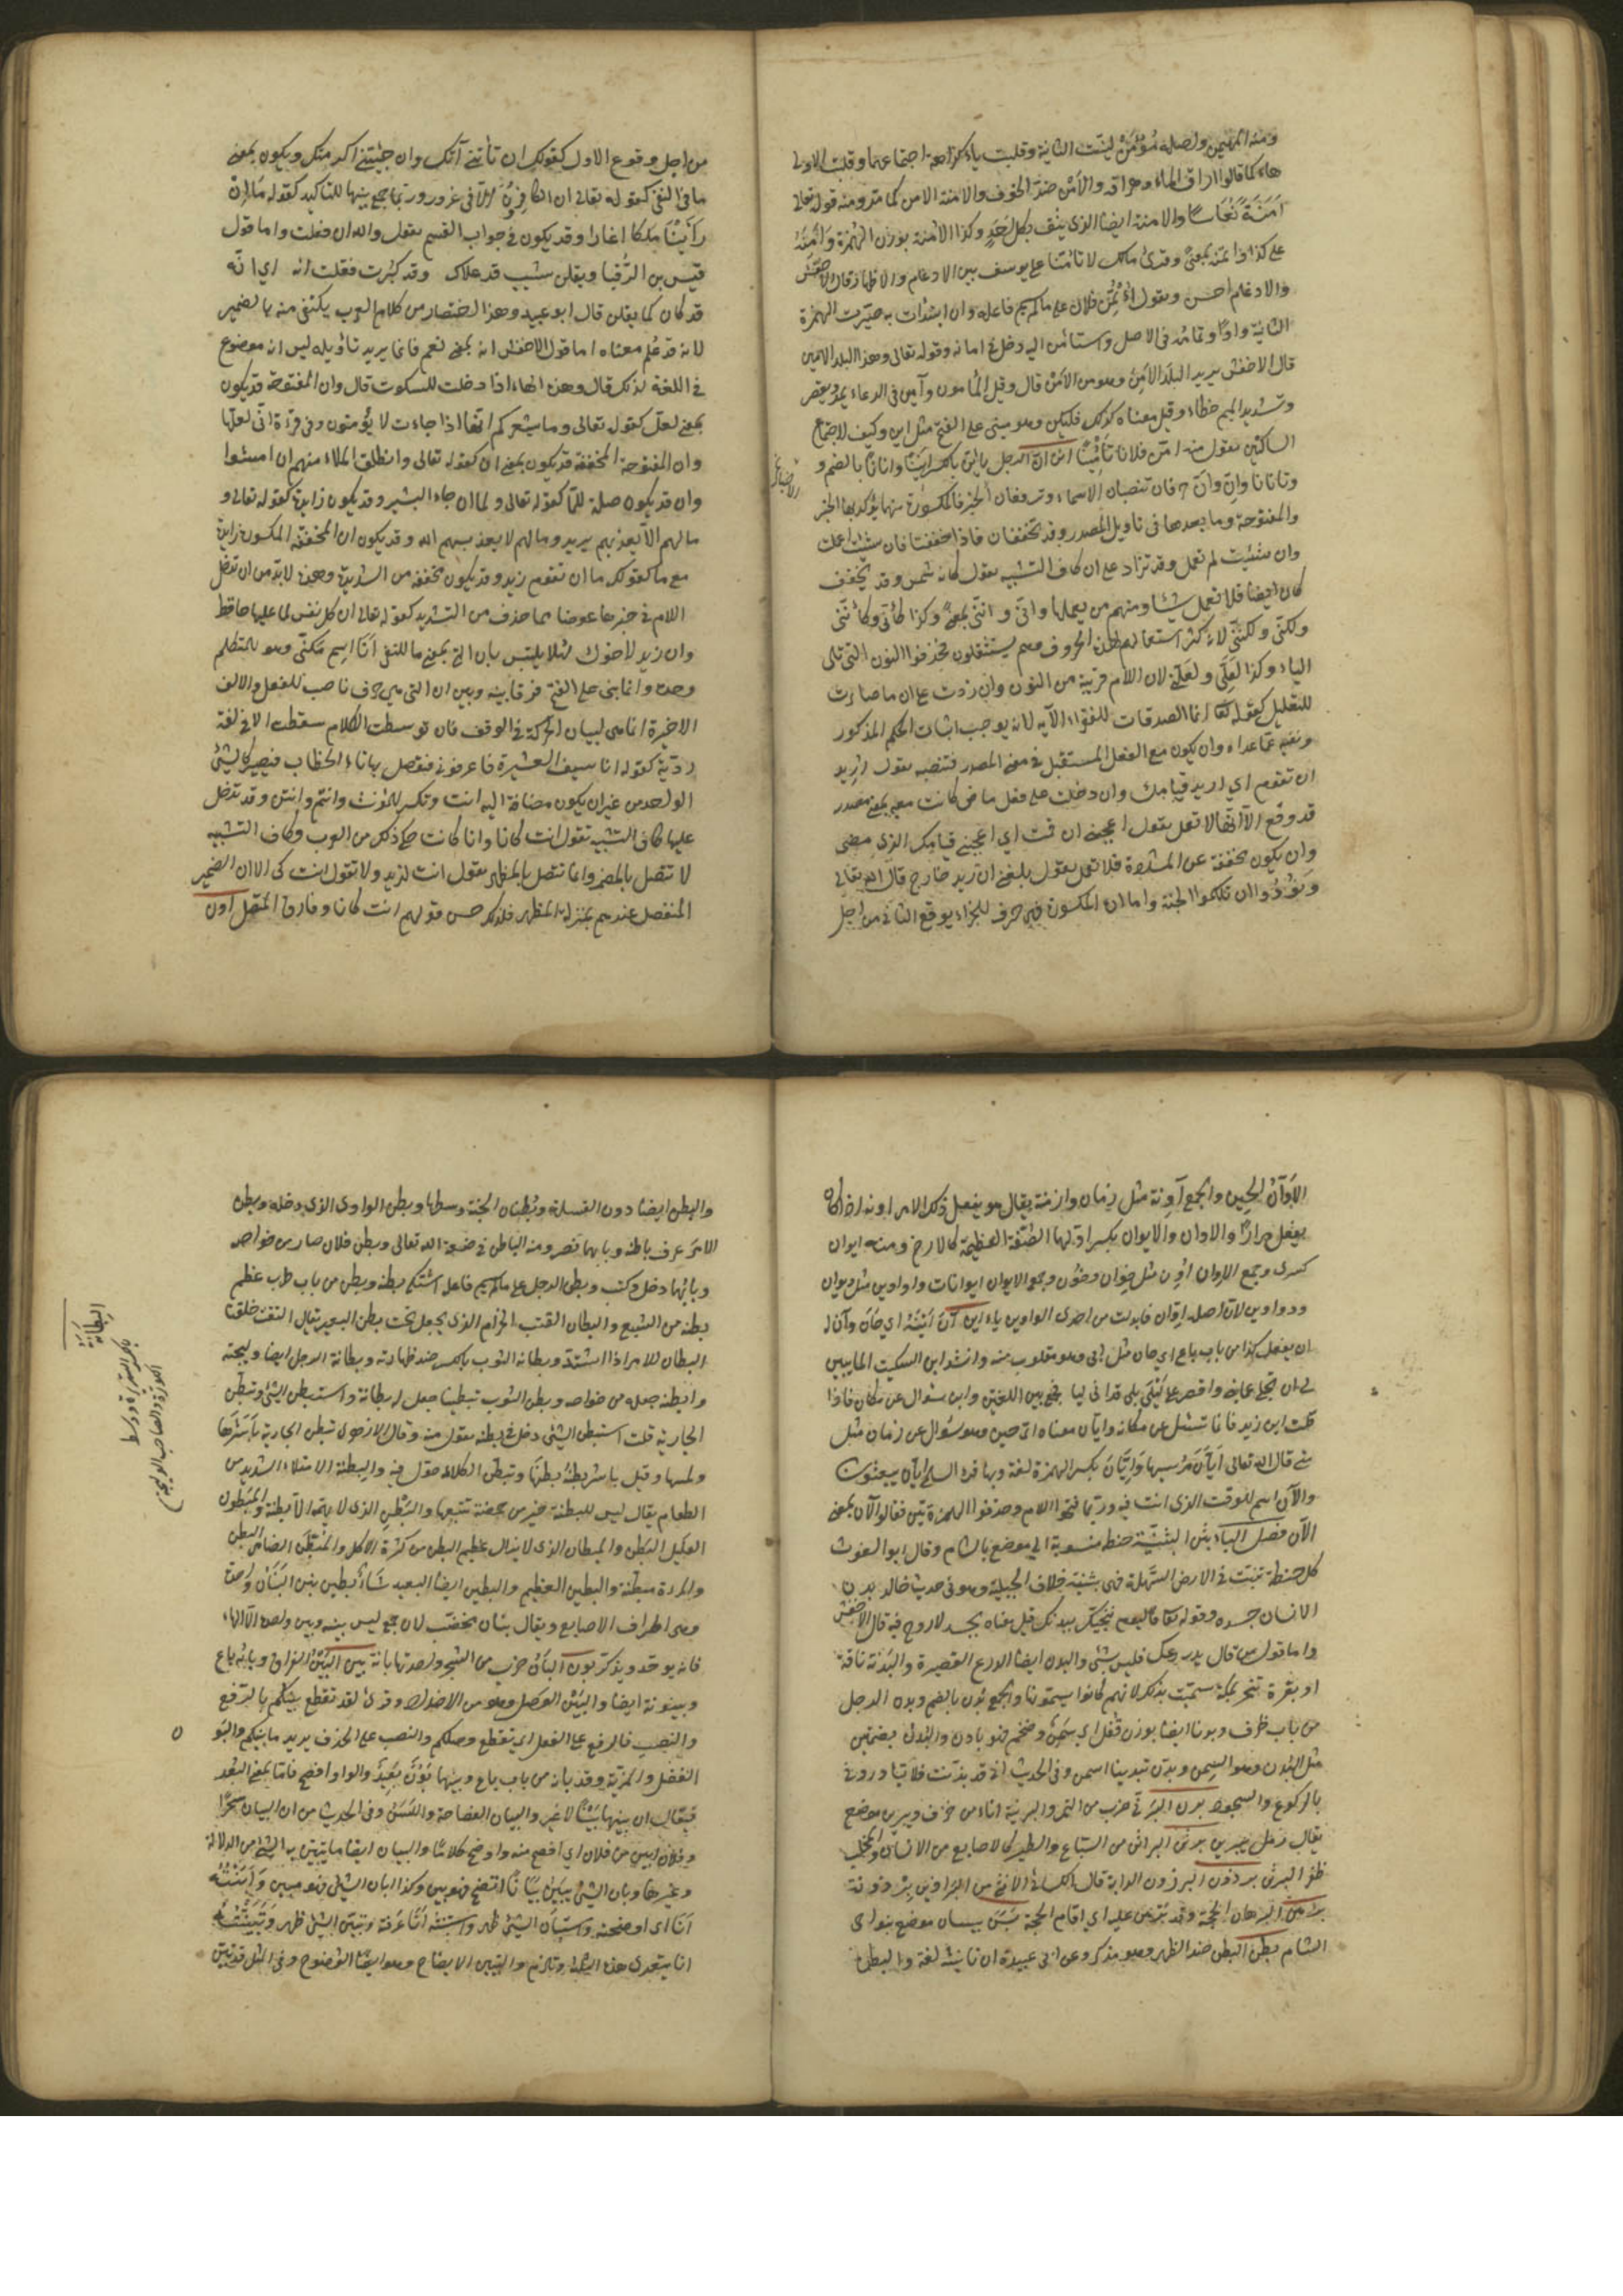 ومنه المهيمن واصله مُؤَمْنٌ لينت الثانية وقلبت ياء كراهة اجتماعهما وقلبت الاولى
هاء كما قالوا اراق الماء وهراقه والأمْن ضد الخوف والامنة الامن كما مر ومنه قوله تعالى
اَمَنَةً نُعَاسًا والامنة ايضا الذى يثق بكل احدٍ وكذا الاُمَنة بوزن الهُمزة وأمِنَهُ
على كذا وائتمنه بمعنى وقرئ مالك لا تأمنا على يوسف بين الادغام والاظهار قال الاخفش
والادغام احسن وتقول اُؤْتُمِنَ فلان على ما لم يسم فاعله وان ابتدأت به صيرت الهمزة
الثانية واوًا وتمامه فى الاصل واستأمن اليه دخل فى امانه وقوله تعالى وهذا البلد الامين
قال الاخفش يريد البلد الآمن وهو من الأمن قال وقيل المأمون وآمين فى الدعاء يمد ويقصر
وتشديد الميم خطاء وقيل معناه كذلك فليكن وهو مبنى على الفتح مثل اين وكيف لاجتماع
الساكنين تقول منه امّن فلانا تأمينًا انن انّ الرجل يأنّ بالكسر اَنينًا واُنانًا بالضم و
وتأنانا وإنّ وأنّ حرفان تنصبان الاسماء وترفعان الخبر فالمكسورة منهما يؤكد بها الخبر
والمفتوحة وما بعدها فى تأويل المصدر وقد تخففان فاذا خففتا فان شئت اعملت
وان شئت لم تعمل وقد تزاد على ان كاف التشبيه تقول كأنه شمس وقد تخفف
كأن ايضا فلا تعمل شيئا ومنهم من يعملها وانّى وانّنى بمعنى وكذا كأنّى وكأنّنى
ولكنّى ولكنّنى لانه كثر استعمالهم لهذه الحروف وهم يستثقلون فحذفوا النون التى تلى
الياء وكذا لعلّى ولعلّنى لان اللام قريبة من النون وان زدت على ان ما صارت
للتقليل كقوله تعالى انما الصدقات للفقراء الآية لانه يوجب اثبات الحكم المذكور
ونفيه عمّا عداه وان تكون مع الفعل المستقبل فى معنى المصدر فتنصبه تقول اُريد
ان تقوم اي اريد قيامك وان دخلت على فعل ماض كانت معه بمعنى مصدر
قد وقع الا انّها لا تعمل تقول اعجبنى ان قمت اي اعجبنى قيامك الذى مضى
وان تكون مخففة عن المشددة فلا تعمل تقول بلغنى ان زيد خارج قال الله تعالى
ونُودُوا ان تلكموا الجنة واما ان المكسورة فهي حرف للجزاء يوقع الثانى من اجل
من اجل وقوع الاول كقولك ان تأتنى آتك وان جئتنى اكرمتك ويكون بمعنى
ما فى النفى كقوله تعالى ان الكافرون الا فى غرور وربما جمع بينهما للتاكيد كقوله ما ان
رأينا ملكا اغارا وقد يكون فى جواب القسم تقول والله ان فعلت واما قول
قيس بن الرُّقيات ويقلن شيب قد علاك وقد كبرت فقلت انه اي انّه
قد كان كما يقلن قال ابو عبيد وهذا اختصار من كلام العرب يكتفى منه بالضمير
لانه قد عُلم معناه اما قول الاخفش انه بمعنى نعم فانما يريد تأويله ليس انه موضوع
فى اللغة لذلك قال وهذه الهاء ادخلت للسكوت قال وان المفتوحة قد يكون
بمعنى لعل كقوله تعالى وما يشعركم انها اذا جاءت لا يؤمنون وفى قراءة ابى لعلها
وان المفتوحة المخففة قد يكون بمعنى اى كقوله تعالى وانطلق الملاء منهم ان امشوا
وان قد يكون صلة للمّا كقوله تعالى ولما ان جاء البشير وقد يكون زايدة كقوله تعالى و
ما لهم الّا يعذبهم يريد وما لهم لا يعذبهم الله وقد يكون ان المخففة المكسورة زايدة
مع ما كقولك ما ان تقوم زيد وقد يكون مخففة من الشديدة وهذه لا بدّ من ان تدخل
اللام فى خبرها عوضا مما حذف من التشديد كقوله تعالى ان كل نفس لما عليها حافظ
وان زيد لاخوك لئلا يلتبس بان التى بمعنى ما للنفى اَنَا اسم مكنىّ وهو للمتكلم
وحده وانما بنى على الفتح فرقا بينه وبين ان التى هى حرف ناصب للفعل والالف
الاخيرة انما هى لبيان الحركة فى الوقف فان توسطت الكلام سقطت الا فى لغة
رديّة كقوله انا سيف العشيرة فاعرفونى فتصل بها تاء الخطاب فيصيران كالشئ
الواحد من غير ان يكون مضافة اليه انت وتكسر للمؤنث وانتم وانتن وقد تدخل
عليها كاف التشبيه تقول انت كأنا وانا كانت حكى ذلك من العرب وكاف التشبيه
لا تتصل بالمضمر وانما تتصل بالمظهر تقول انت كزيد ولا تقول انت كى الا ان الضمير
المنفصل عندهم بمنزلة المظهر فلذلك حسن قولهم انت كأنا وفارق المتصل اون
الاَوَانُ الحِين والجمع آوِنة مثل زمان وازمنة يقال هو يفعل ذلك الامر اونة اذا كان
يفعل مرارًا والاوان والايوان بكسر اولهما الصُّفّة العظيمة كالازج ومنه ايوان
كسرى وجمع الاِوان اُوُن مثل خِوان وخُوُن وجمع الايوان ايوانات واواوين مثل ديوان
ودواوين لان اصله اِوّان فابدلت من احدى الواوين ياء اين آنَ اَيْنُهُ اي حَانَ وآن له
ان يفعل كذا من باب باع اي حان مثل انى وهو مقلوب منه وانشد ابن السكيت المايبين
لى ان تجلى عمايتى واقصر عن ليلى بلى قد انى ليا فجمع بين اللغتين واين سئوال عن مكان فاذا
قلت اين زيد فانما تسئل عن مكانه وايان معناه اىّ حين وهو سئوال عن زمان مثل
متى قال الله تعالى اَيّانَ مُرسيها وَاِيّان بكسر الهمزة لغة وبها قرء السلمى ايان يبعثون
والآن اسم للوقت الذى انت فيه وربما فتحوا اللام وحذفوا الهمزتين فقالوا لان بمعنى
الآن فصل الباء بثن البَثَنِيَّة حنطة منسوبة الى موضع بالشام وقال ابو الغوث
كل حنطة تنبت فى الارض السَّهلة فهى بثنية خلاف الجبلية وهو فى حديث خالد بدن
الانسان جسده وقوله تعالى فاليوم ننجيك ببدنك قيل معناه بجسد لا روح فيه قال الاخفش
واما قول من قال بدرعك فليس بشئ والبدن ايضا الدرع القصيرة والبَدَنة ناقة
او بقرة تنحر بمكة سمّيت بذلك لانهم كانوا يسمنونها والجمع بُدن بالضم وبدن الرجل
من باب ظرف وبدنا ايضا بوزن قفل اي سَمِنَ وضخم فهو بادن والبُدُن بضمتين
مثل البُدْن وهو السِمَن وبدّن تبدينا اسمن وفى الحديث انى قد بدّنت فلا تبادرونى
بالركوع والسجود برن البَرْنىّ ضرب من التمر والبرنية اناء من خزف ويبرين موضع
يقال رمل يبرين برثن البراثن من السباع والطير كالاصابع من الانسان والمخلب
ظفر البرثن برذن البرذون الدابة قال الكسائى الانثى من البراذين برذونة
برهن البرهان الحجة وقد برهن عليه اي اقام الحجة بَسَنَ بيسان موضع بنواحى
الشام بطن البطن ضد الظهر وهو مذكر وعن ابى عبيدة ان تانيثه لغة والبطن
والبطن ايضا دون القبيلة وبُطنان الجنة وسطها وبطن الوادى الذى دخله وبطن
الامر عرف باطنه وبابهما نصر ومنه الباطن فى صفة الله تعالى وبطن فلان صار من خواصه
وبابُهما دخل وكتب وبطن الرجل على ما لم يسم فاعله اشتكى بطنه وبطن من باب طرب عظم
بطنه من الشبع والبطان القتب الحزام الذى يجعل تحت بطن البعير يقال التقت حلقتا
البطان للامر اذا اشتدّ وبطانة الثوب بالكسر ضد ظهارته وبطانة الرجل ايضا وليجته
وابطنه جعله من خواصه وبطن الثوب تبطينا جعل له بطانة واستبطن الشئ وتبطن
الجارية قلت استبطن الشئ دخل فى بطنه تقول منه وقال الازهرى تبطن الجارية باشرها
ولمسها وقيل باشر بطنُهُ بطنَها وتبطّن الكلاء جوّل فيه والبِطنة الامتلاء الشديد من
الطعام يقال ليس للبِطنة خير من خمصة تتبعها والبَطِن الذى لا يهمّه الا بطنه والمبطون
العليل البطن والمبطان الذى لا يزال عظيم البطن من كثرة الاكل والمُبَطَّن الضامر البطن
والمراة مبطّنة والبطين العظيم والبطين ايضا البعيد شأوٌ بطين بنن البَنَان واحدته
وهى اطراف الاصابع ويقال بنان مخضّب لان جمع ليس بينه وبين واحده الا الهاء
فانه يوحّد ويذكّر بون البانُ ضرب من الشجر واحدتها بانة بين البَيْنُ الفراق وبابُه باع
وبينونة ايضا والبَيْن الوَصل وهو من الاضداد وقرئ لقد تقطع بينكم بالرفع
والنصب فالرفع على الفعل اي تقطع وصلكم والنصب على الحذف يريد ما بينكم والبَوْن
الفضل والمزيّة وقد بانه من باب باع وبينهما بَوْنٌ بَعيدٌ والواو افصح فامّا بمعنى البُعد
فيقال ان بينهما بَيْنًا لا غير والبيان الفصاحة واللَسَن وفى الحديث من ان البيان سحرًا
وفلان ابين من فلان اي افصح منه واوضح كلامًا والبيان ايضا ما يتبين به الشئ من الدلالة
وغيرها وبان الشئ يبين بَيَانًا اتضح فهو بين وكذا ابان الشئ فهو مبين وَاَبَنْتُهُ
اَنَا اى اوضحته واستبان الشئ ظهر واستبنته اَنَا عرفته وتبيّن الشئ ظهر وَتَبَيَّنْتُهُ
انا يتعدى هذه الثلثة وتلزم والتبيين الايضاح وهو ايضًا الوُضوح وفى المثل قد بيّن
البِطَانَةُ
بالكسر السريرة وسط
الكورة والصاحب الوليجة